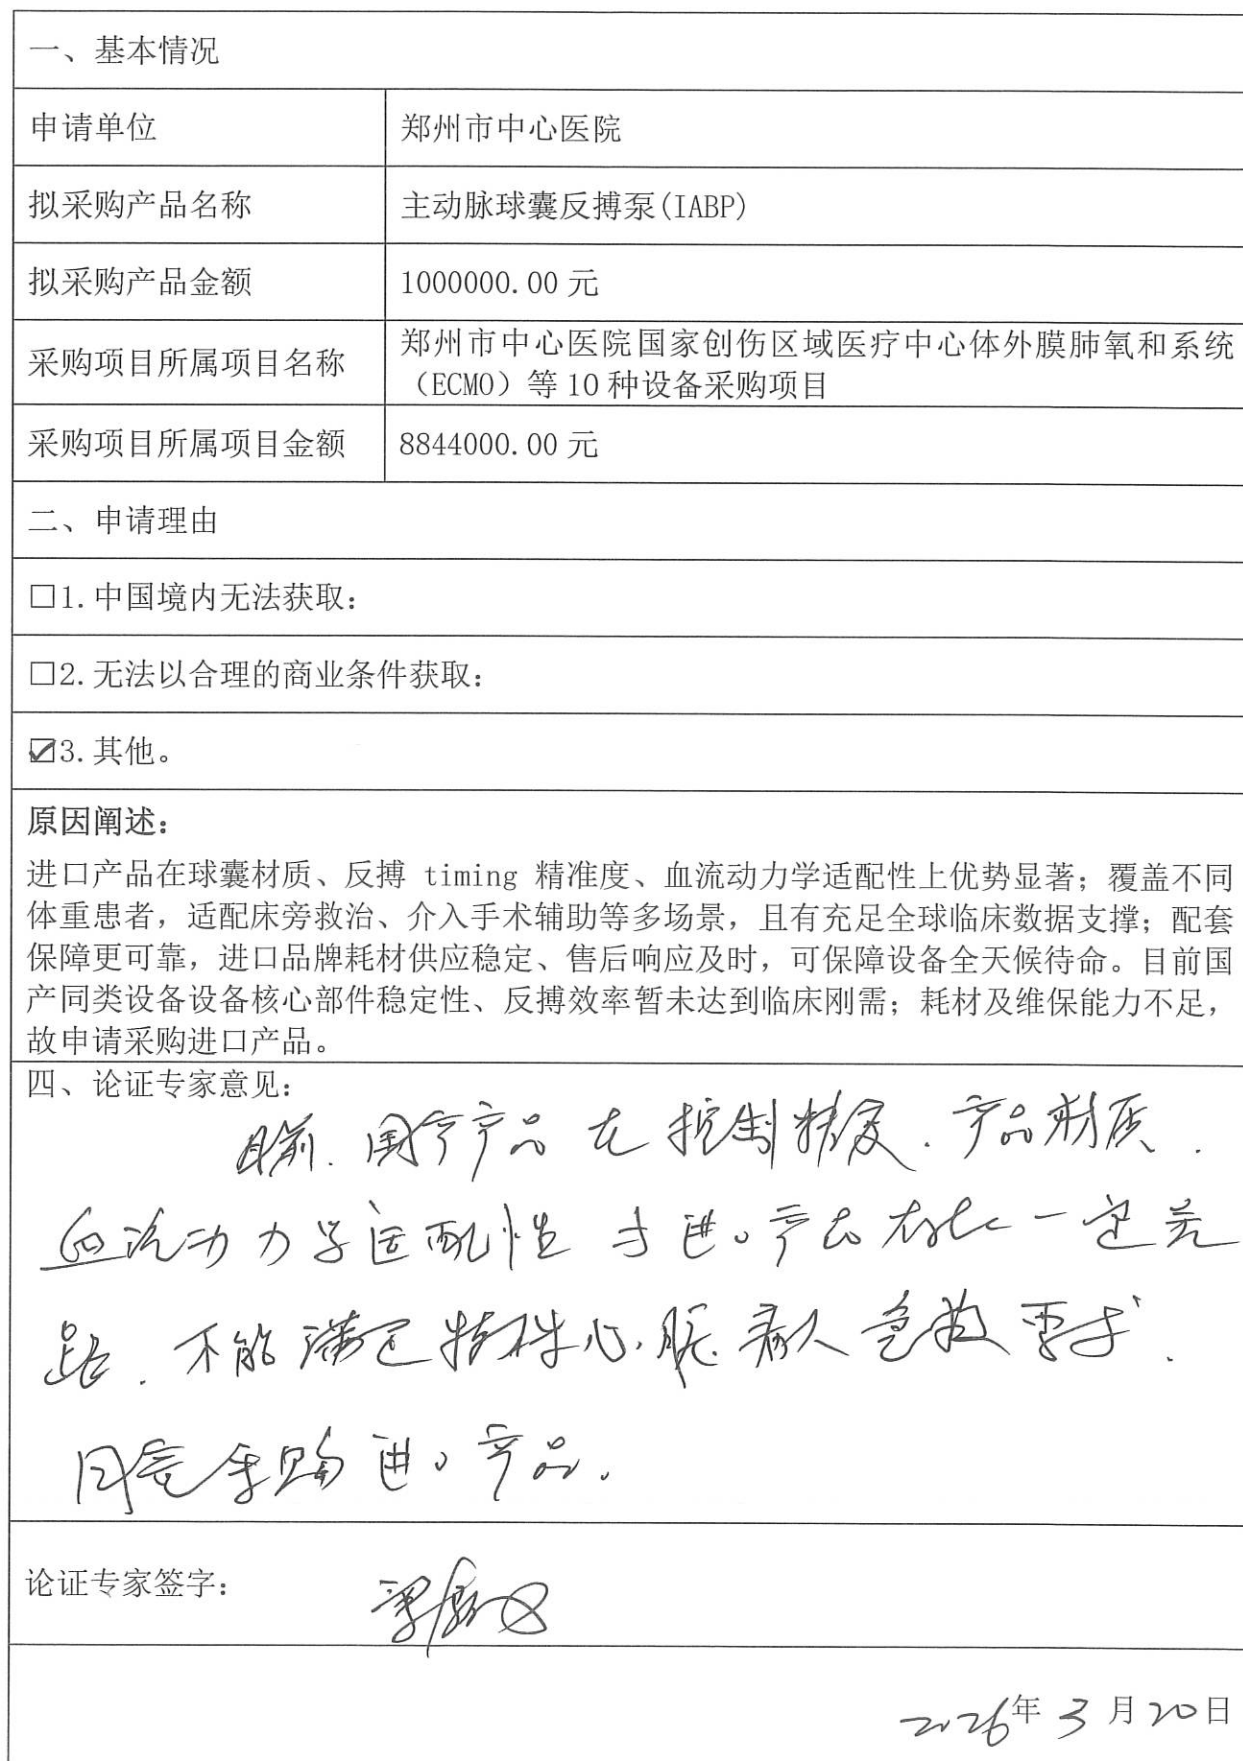 一、基本情况
申请单位
郑州市中心医院
拟采购产品名称
主动脉球囊反搏泵(IABP)
拟采购产品金额
1000000.00 元
采购项目所属项目名称
郑州市中心医院国家创伤区域医疗中心体外膜肺氧和系统
（ECMO）等 10 种设备采购项目
采购项目所属项目金额
8844000.00 元
二、申请理由
☐1.中国境内无法获取：
☐2.无法以合理的商业条件获取：
☑3.其他。
原因阐述：
进口产品在球囊材质、反搏 timing 精准度、血流动力学适配性上优势显著；覆盖不同
体重患者，适配床旁救治、介入手术辅助等多场景，且有充足全球临床数据支撑；配套
保障更可靠，进口品牌耗材供应稳定、售后响应及时，可保障设备全天候待命。目前国
产同类设备设备核心部件稳定性、反搏效率暂未达到临床刚需；耗材及维保能力不足，
故申请采购进口产品。
四、论证专家意见：
目前.国产产品在控制精度.产品材质.
血流动力学适配性与进口产品存在一定差
距.不能满足特殊心脏病人急救需求.
同意采购进口产品.
论证专家签字：
2026年3月20日